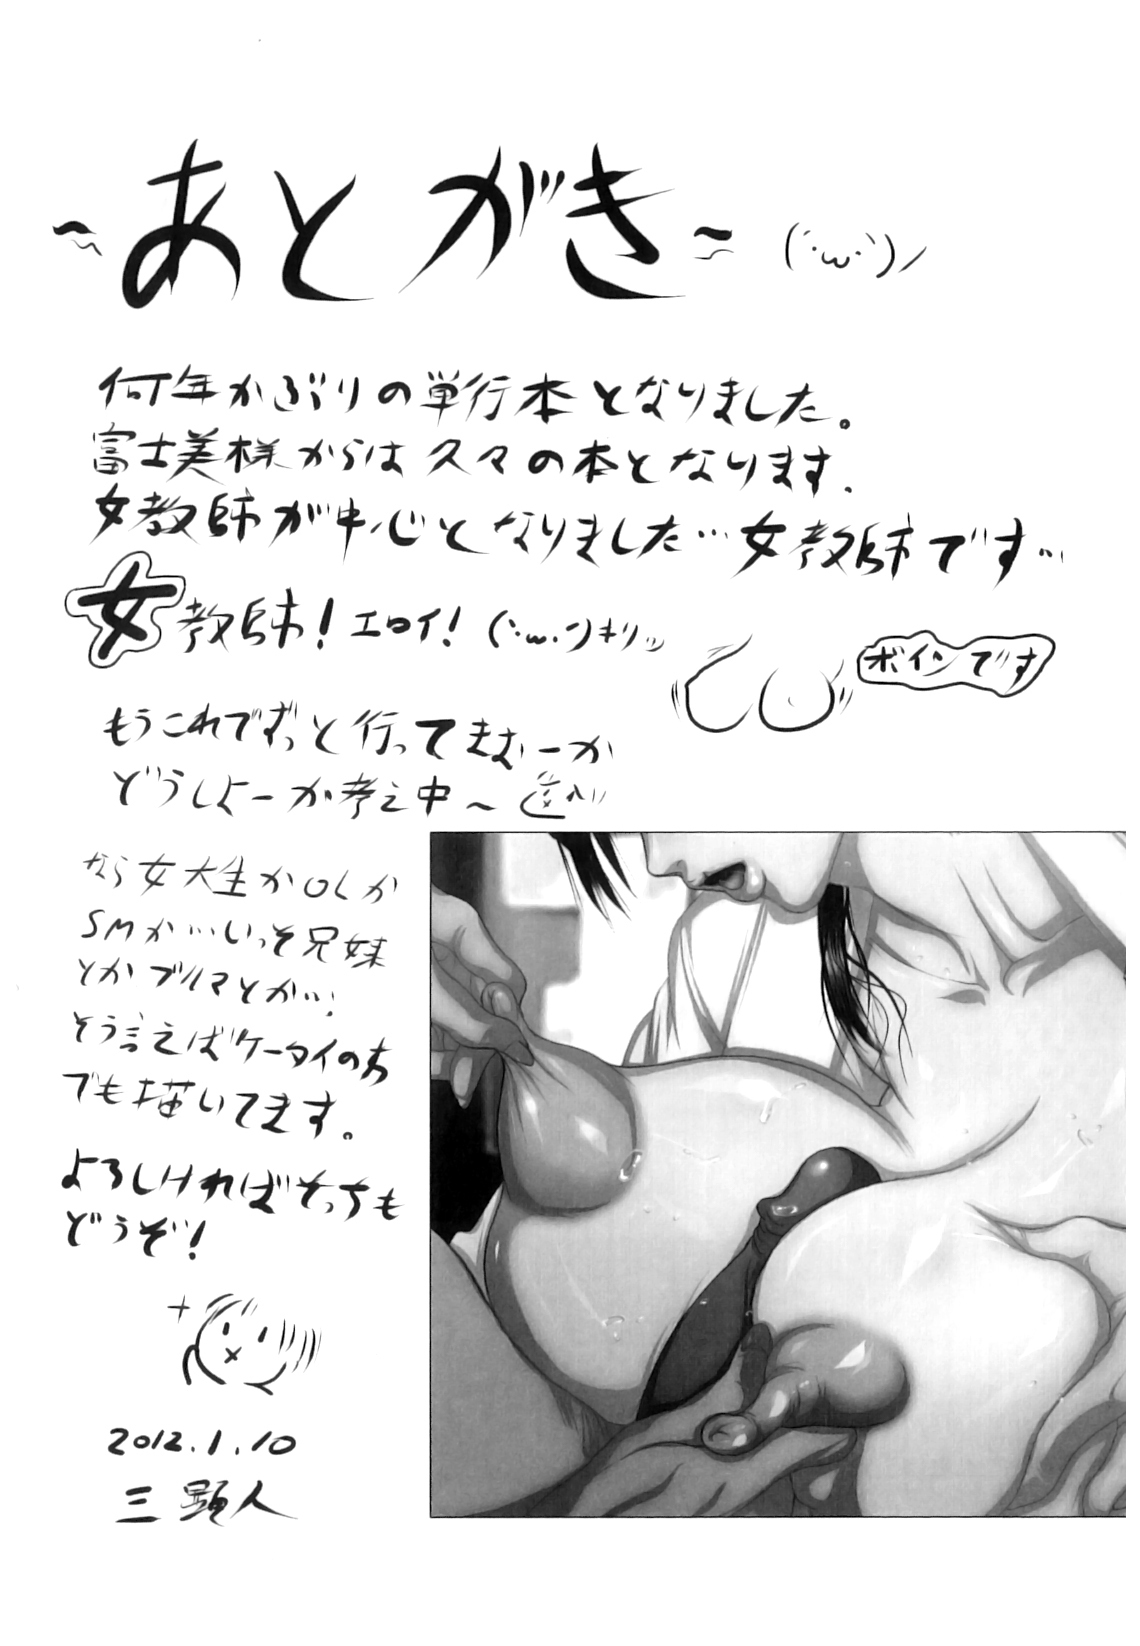 ～あとがき～ (´･ω･`)ノ
何年かぶりの単行本となりました。
富士美様からは久々の本となります.
女教師が中心となりました…女教師です…
女教師!エロイ! (`･ω･´)キリッ
ボインです
もうこれでずっと行ってきむーか
どうしよーか考え中～
なら女大生かOLか
SMか…いっそ兄妹
とかブルマとか…!
そう言えばケータイの方
でも描いてます。
よろしければそっちも
どうぞ!
2012.1.10
三顕人